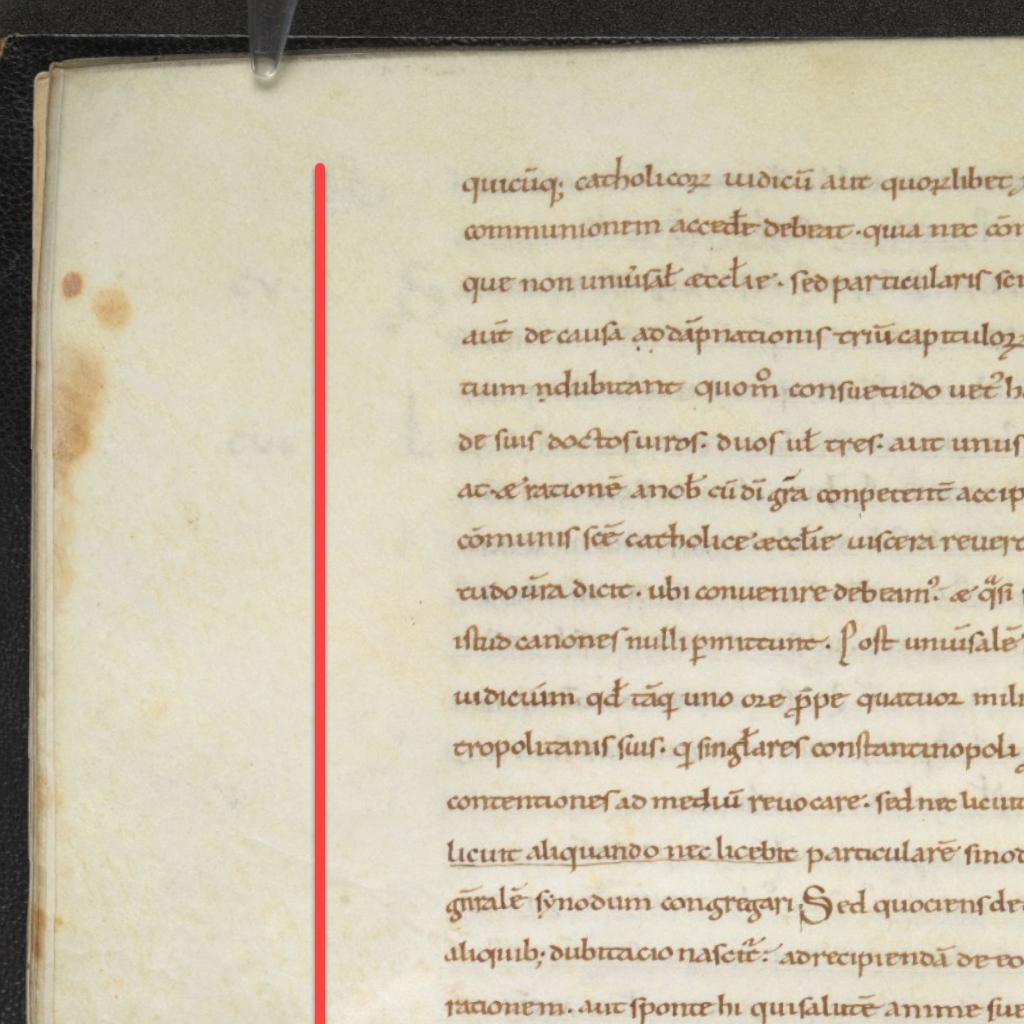 quicūq; catholicoꝝ iudiciū aut quoꝝlibet
communionem accedꝉe debeat · quia nec cōm
que non uniu̓saꝉ æccꝉie · sed particularis
aut̄ de causa ad dāpnationis triū capituloꝝ
tium ndubitant quom̊ consuetudo uet᷒
de suis doctos uiros · duos uꝉ tres · aut unus
at · æ rationē a nob̄ cū dī gr̄a conpetent̄ accip
cōmunis scē catholice æccꝉie uiscera reuert
tudo ur̄a dicit · ubi conuenire debeam᷒ · æ qͣsi
istud canones nulli ꝑmittunt · Post uniūsalē
iudicium qđ tāq uno ore ꝓpe quatuor
tropolitanis suis · q singꝉares constantinopoli
contentiones ad mediū reuocare · sed nec licuit
licuit aliquando nec licebit particularē sinod
gn̄ralē synodum congregari Sed quociens de
aliquib; dubitacio nascit᷑ · ad recipiendā de eo
rationem · aut sponte hi qui salutē anime sue